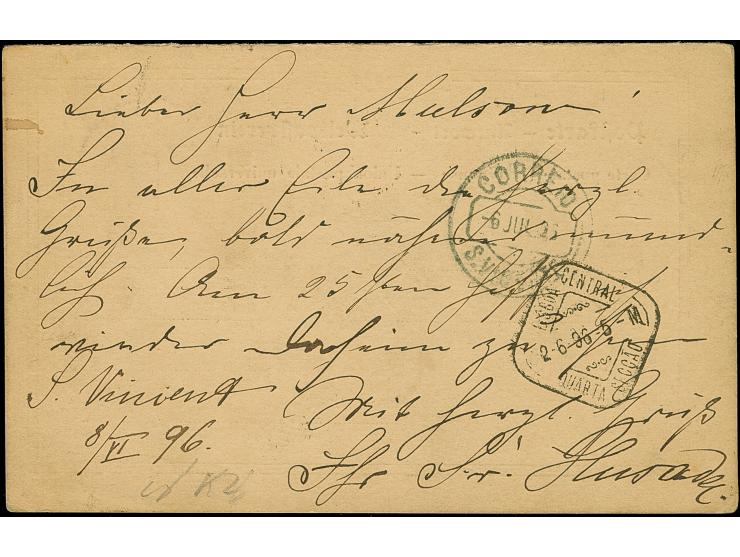 Lieber Herr
In aller Eile die herzl.
Grüße, bald näheres münd-
lich. Am 25sten hoffe
wieder daheim zu
S. Vincent Mit herzl. Gruß
8/VI 96. Ihr
CORREIO
-6 JUN
S. VIN
CENTRAL
2-6-96 6-M
QUARTA SECCAO
LISBOA